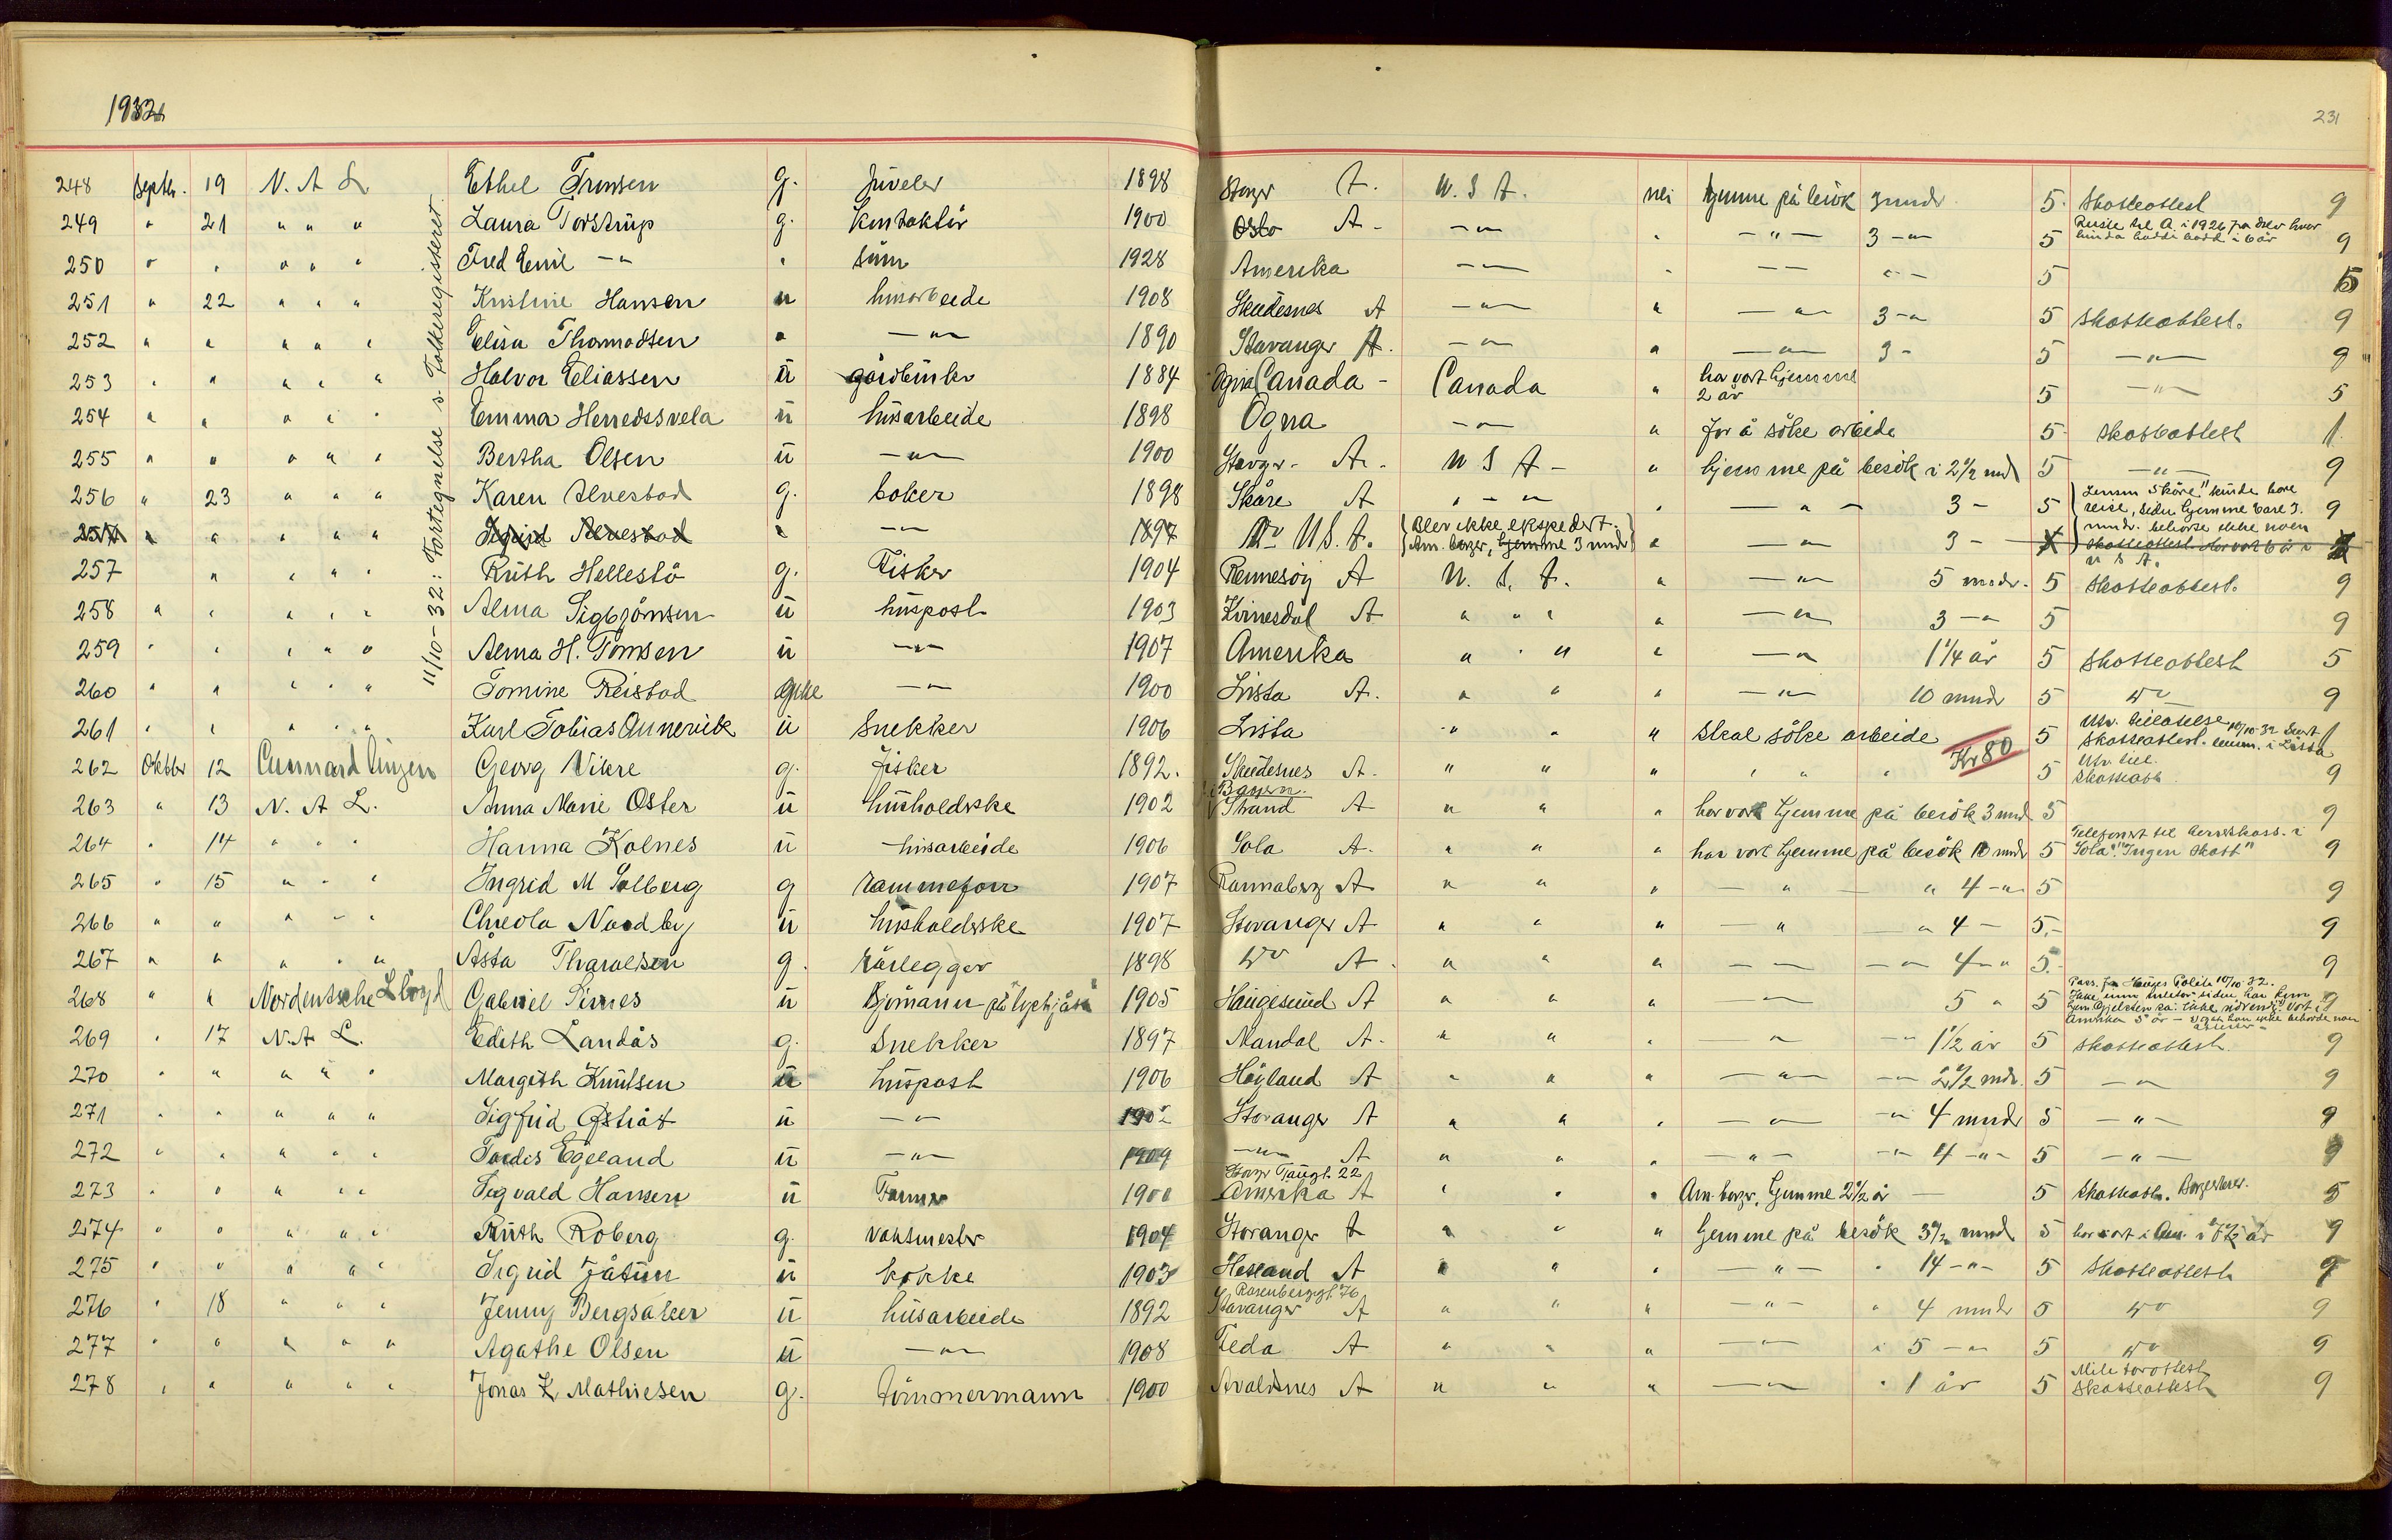 1932
231
248 Septr. 19 N. A. L. Ethel Tronsen g. Juveler 1898 Stavgr A. U. S. A. nei hjemme på besök 3 mndr 5. Skatteattest 9
Reiste til A. i 1926 fra Oslo hvor
249 " 21 " " " Laura Torstrup g. Kontaktör 1900 Oslo A - — " — " — " — 3 — " 5 hadde bodd i 6 år 9
250 " " " " " Fred Emil — " " sönn 1928 Amerika — " — " — — " — 5 5
251 " 22 " " " Kristine Hansen u husarbeide 1908 Skudesnes A — " — " — " — 3 — " 5 Skatteattest. 9
252 " " " " " Elisa Thomodsen " — " — 1890 Stavanger A. — " — " — " — 3 - 5 — " — 9
253 " " " " " Halvor Eliassen u gårdbruker 1884 Ogna Canada - Canada " har vært hjemme
2 år 5 — " — 5
254 " " " " " Emma Herredsvela u husarbeide 1898 Ogna — " — " for å söke arbeide 5 Skatteattest 1
255 " " " " " Bertha Olsen u — " — 1900 Stavgr. A. U S A - " hjemme på besök i 2 1/2 mnd 5 — " — 9
256 " 23 " " " Karen Alvestad g. baker 1898 Skåre A " - " " — " — 3 - 5 9
Lensm. Skåre "kunde bare
reise, siden hjemme bare 3.
mndr. behövse ikke noen
257 " " " " " Sigrid Alvestad " — " — 1897 Do U.S.A. Blev ikke ekspedert.
Am. borger, hjemme 3 mndr " — " — 3 - skatteattest. Har vært 6 år i
U S A.
257 " " " " Ruth Hellestö g. Fisker 1904 Rennesöy A U. S. A. " — " — 5 mndr. 5 Skatteattest. 9
258 " " " " " Alma Sigbjörnsen u huspost 1903 Kvinesdal A " " " " — " — 3 — " 5 9
259 " " " " " Alma H. Tomsen u — " — 1907 Amerika " " " " — " 1 1/4 år 5 Skatteattest 5
260 " " " " " Tomine Reistad enke — " — 1900 Lista A. " " " — " — 10 mndr 5 Do 9
261 " " " " " Karl Tobias Annervik u Snekker 1906 Lista " " " Skal söke arbeide 5 Utv. tillatelse 10/10-32
Skatteattest. lensm. i Lista 1
Kr 80
262 Oktbr 12 Cunnard Linjen Georg Vikre g. fisker 1892. Skudesnes A. " " " " " " 5 Utv. till.
Skatteatt. 9
263 " 13 N. A L. Anna Marie Oster u husholderske 1902 Strand A " " " har vært hjemme på besök 3 mnd 5 9
264 " 14 " " " Hanna Kolnes u husarbeide 1906 Sola A. " " " har vært hjemme på besök 10 mndr 5 Telefonert til herredskass. i
Sola: "Ingen skatt" 9
265 " 15 " " " Ingrid M Solberg g 1907 Rannaberg A " " " — " — " 4 — " 5 9
266 " " " " " Nordby u husholderske 1907 Stavanger A " " " — " — " 4 — 5.- 9
267 " " " " " Åsta Tharaldsen g. rörlegger 1898 Do A " " " — — — " 4 — " 5.- 9
268 " " Nordeutsche Lloyd Gabriel Simes u Sjömann 1905 Haugesund A " " " — " — 5 " 5 Pass. fra Hauges Politi 10/10 32. 9
Amerika 5 år
269 " 17 N. A L. Edith Landås g. Snekker 1897 Mandal A. " " " — " — " 1 1/2 år 5 skatteattest. 9
270 " " " " " Margith Knutsen u huspost 1906 Höyland A " " " — " — — " 2 1/2 mdr. 5 — " 9
271 " " " " " Sigfrid Östråt u — " — 1902 Stavanger A " " " — " — " 4 mndr 5 — " — 9
272 " " " " " Tordis Egeland u — " — 1909 — " — A " " " — " — — " 4 — " — 5 — " — 9
Stavgr Taugt. 22
273 " " " " " Sigvald Hansen u Farmer 1900 Amerika A " " " Am. borger. hjemme 2 1/2 år — 5 Skatteatt. Borgerbrev. 5
274 " " " " " Ruth Roberg g. Vaktmester 1904 Stavanger A " " " hjemme på besök 3 1/2 mnd 5 har vært i Am. i 7 1/2 år 9
275 " " " " " Sigrid Jåtun u kokke 1903 Hetland A " " " — " — " 14 — " — 5 Skatteattest 9
Rosenberggt. 76
276 " 18 " " " Jenny Bergsaker u husarbeide 1892 Stavanger A " " " — " — " 4 mndr 5 Do 9
277 " " " " " Agathe Olsen u — " — 1908 Feda A " " " — " — " 5 — " 5 Do 9
278 " " " " " Jonas K Mathiesen g. tömmermann 1900 Avaldsnes A " " " — " — " 1 år 5
Skatteattest 9
11/10-32: Fortegnelse s. Folkeregisteret